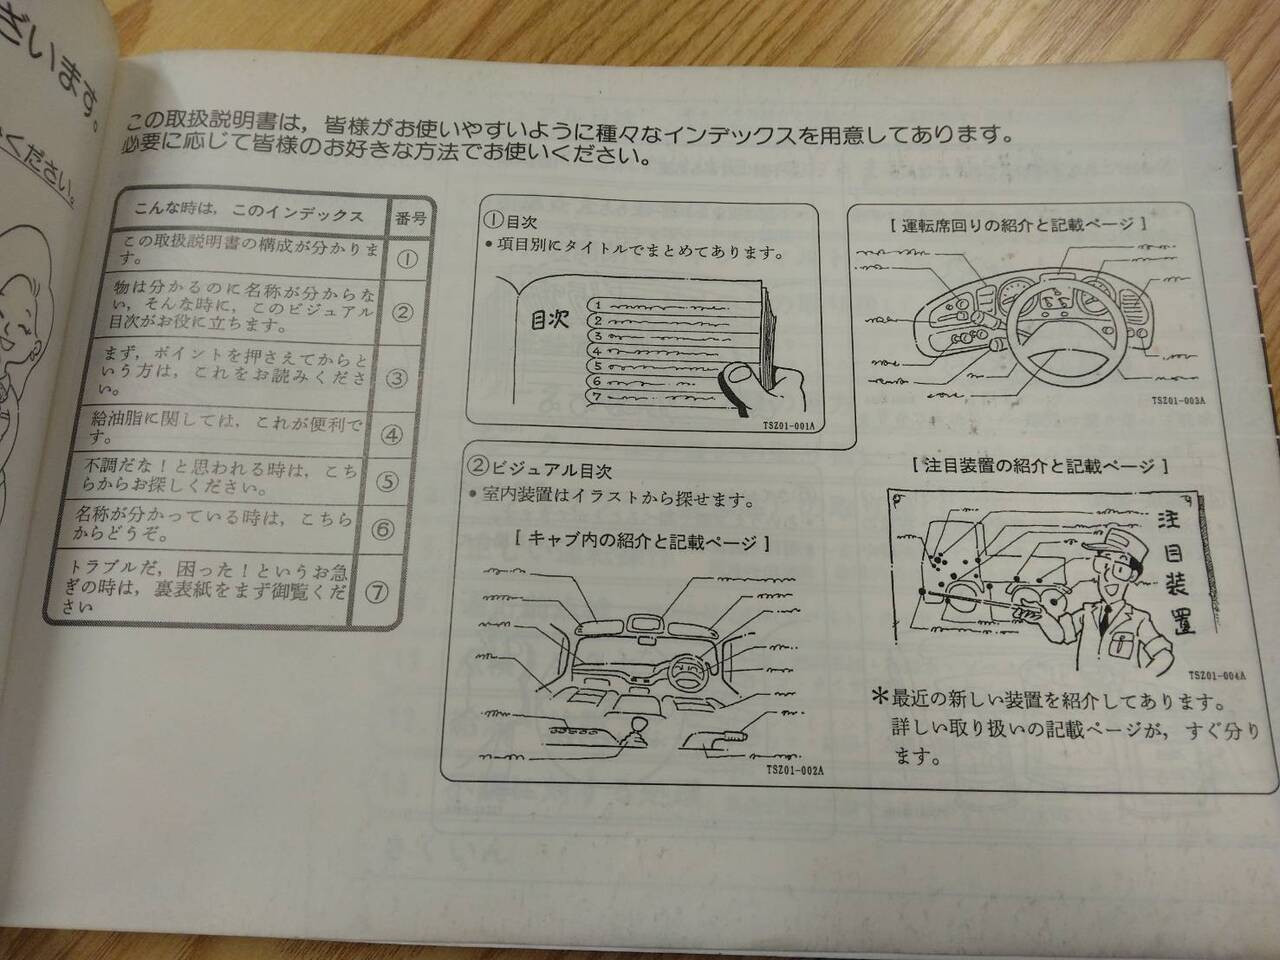 ざいます。
ください。
この取扱説明書は，皆様がお使いやすいように種々なインデックスを用意してあります。
必要に応じて皆様のお好きな方法でお使いください。
こんな時は，このインデックス
番号
この取扱説明書の構成が分かりま
す。
①
物は分かるのに名称が分からな
い，そんな時に，このビジュアル
目次がお役に立ちます。
②
まず，ポイントを押さえてからと
いう方は，これをお読みくださ
い。
③
給油脂に関しては，これが便利で
す。
④
不調だな！と思われる時は，こち
らからお探しください。
⑤
名称が分かっている時は，こちら
からどうぞ。
⑥
トラブルだ，困った！というお急
ぎの時は，裏表紙をまず御覧くだ
さい
⑦
①目次
●項目別にタイトルでまとめてあります。
目次
1
2
3
4
5
6
7
TSZ01-001A
②ビジュアル目次
●室内装置はイラストから探せます。
[ キャブ内の紹介と記載ページ ]
TSZ01-002A
[ 運転席回りの紹介と記載ページ ]
TSZ01-003A
[ 注目装置の紹介と記載ページ ]
注目装置
TSZ01-004A
＊最近の新しい装置を紹介してあります。
詳しい取り扱いの記載ページが，すぐ分り
ます。